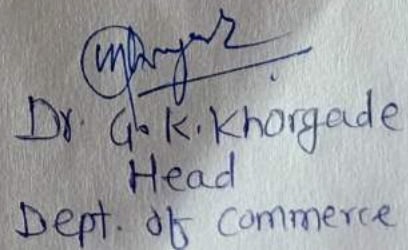 Dr. G. K. Khorgade
Head
Dept. of commerce